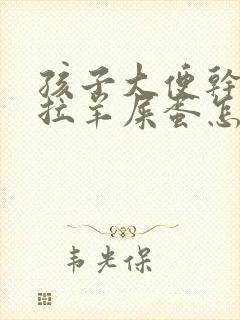 孩子大便幹
拉羊屎蛋怎
韦光保